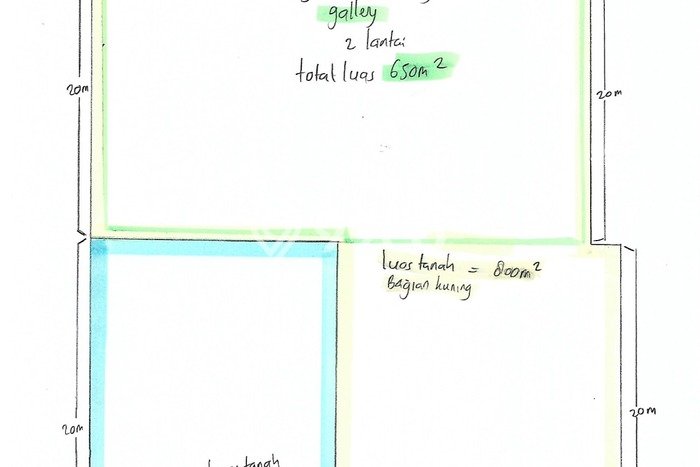 gallery
2 lantai
total luas 650m²
20m
20m
luas tanah = 800m²
Bagian kuning
20m
20m
luas tanah